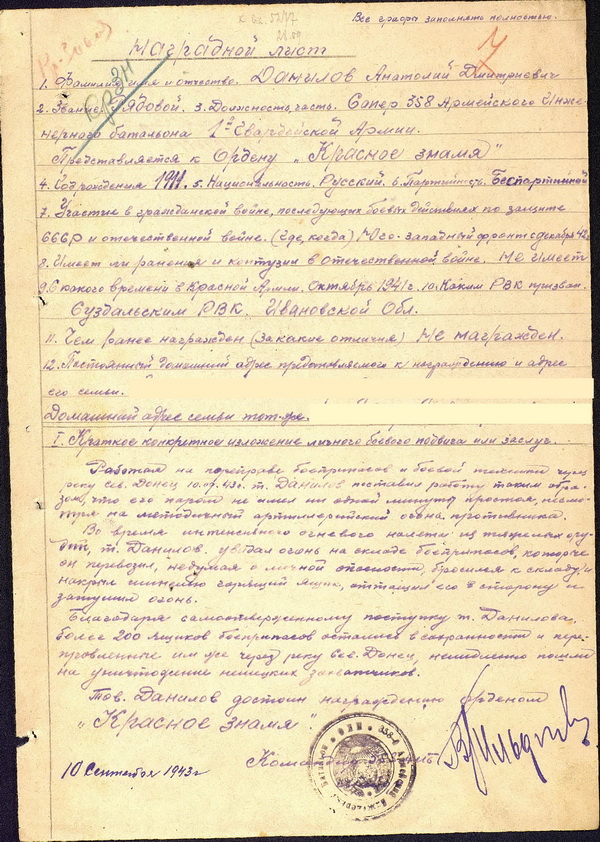 Все графы заполнять полностью.
Наградной лист
1. Фамилия имя и отчество. Данилов Анатолий Дмитриевич
2. Звание. Рядовой. 3. Должность, часть. Сапер 358 Армейского Инже-
нерного батальона 1й Гвардейской Армии.
Представляется к Ордену „Красное знамя"
4. Год рождения 1911. 5. Национальность. Русский. 6. Партийность. Беспартийный
7. Участие в гражданской войне, последующих боевых действиях по защите
СССР и отечественной войне. (где, когда) Юго-западный фронт с декабря 42г.
8. Имеет ли ранения и контузии в отечественной войне. Не имеет
9. С какого времени в Красной Армии. Октябрь 1941г. 10. Каким РВК призван.
Суздальским РВК. Ивановской Обл.
11. Чем ранее награжден (за какие отличия) Не награжден.
12. Постоянный домашний адрес представляемого к награждению и адрес
его семьи.
Домашний адрес семьи тот-же.
I. Краткое конкретное изложение личного боевого подвига или заслуг.
Работая на переправе боеприпасов и боевой техники через
реку сев. Донец т. Данилов поставил работу таким обра-
зом, что его паром не имел ни одной минуты простоя, несмо-
тря на методичный артиллерийский огонь противника.
Во время интенсивного огневого налета из тяжелых ору-
дий, т. Данилов увидал огонь на складе боеприпасов, которые
он перевозил, недумая о личной опасности, бросился к складу и
накрыл шинелью горящий ящик, оттащил его в сторону и
затушил огонь.
Благодаря самоотверженному поступку т. Данилова,
более 200 ящиков боеприпасов остались в сохранности и пере-
правленные им же через реку Сев. Донец, немедленно пошли
на уничтожение немецких захватчиков.
Тов. Данилов достоин награждению орденом
„Красное знамя"
10 Сентября 1943г